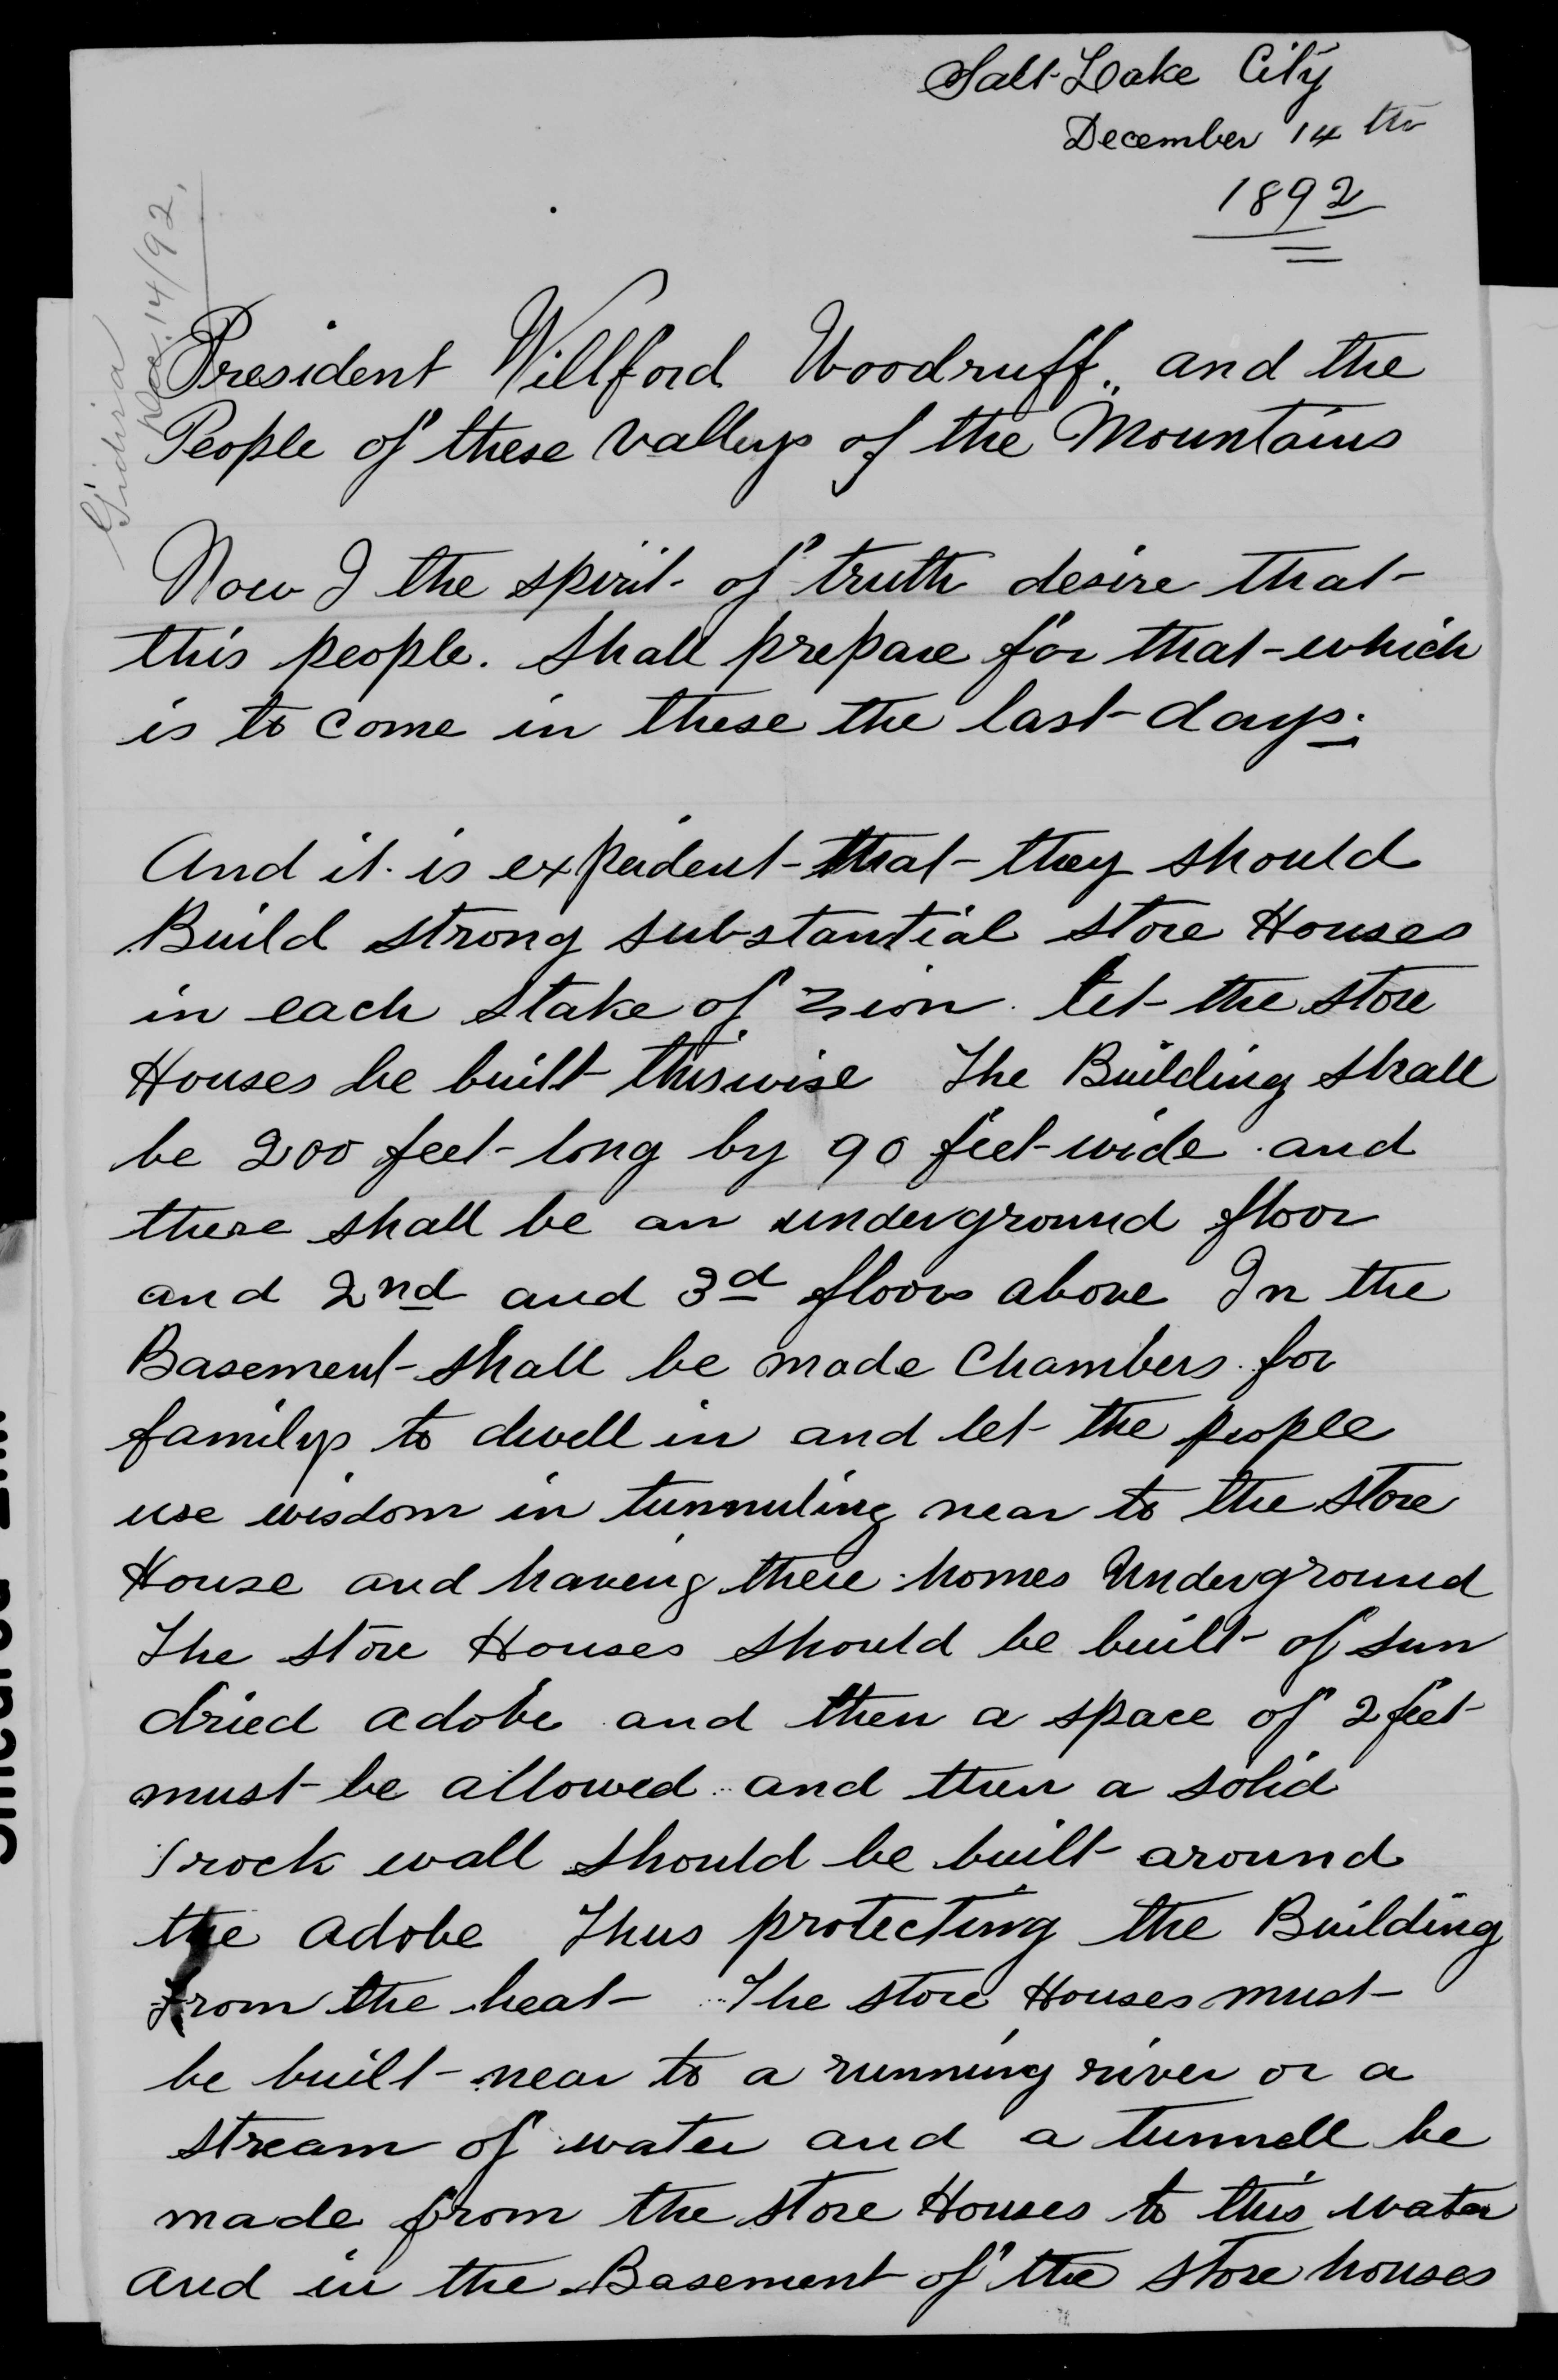 Salt Lake City
December 14th
1892
Dec. 14/92.
President Willford Woodruff., and the
People of these valleys of the Mountains
Now I the spirit of truth desire that
this people. shall prepare for that which
is to come in these the last days.
And it is expeident that they should
Build strong substantial store Houses
in each stake of zion. Let the store
Houses be built thiswise The Building shall
be 200 feet long by 90 feet wide and
there shall be an underground floor
and 2nd and 3d floors above In the
Basement shall be made Chambers for
familys to dwell in and let the people
use wisdom in tunnuling near to the store
House and haveing there homes Underground
The store Houses should be built of sun
dried adobe and then a space of 2 feet
must be allowed and then a solid
rock wall should be built around
the adobe Thus protecting the Building
From the heat The store Houses must
be built near to a running river or a
stream of water and a tunnell be
made from the store Houses to this water
and in the Basement of the store houses